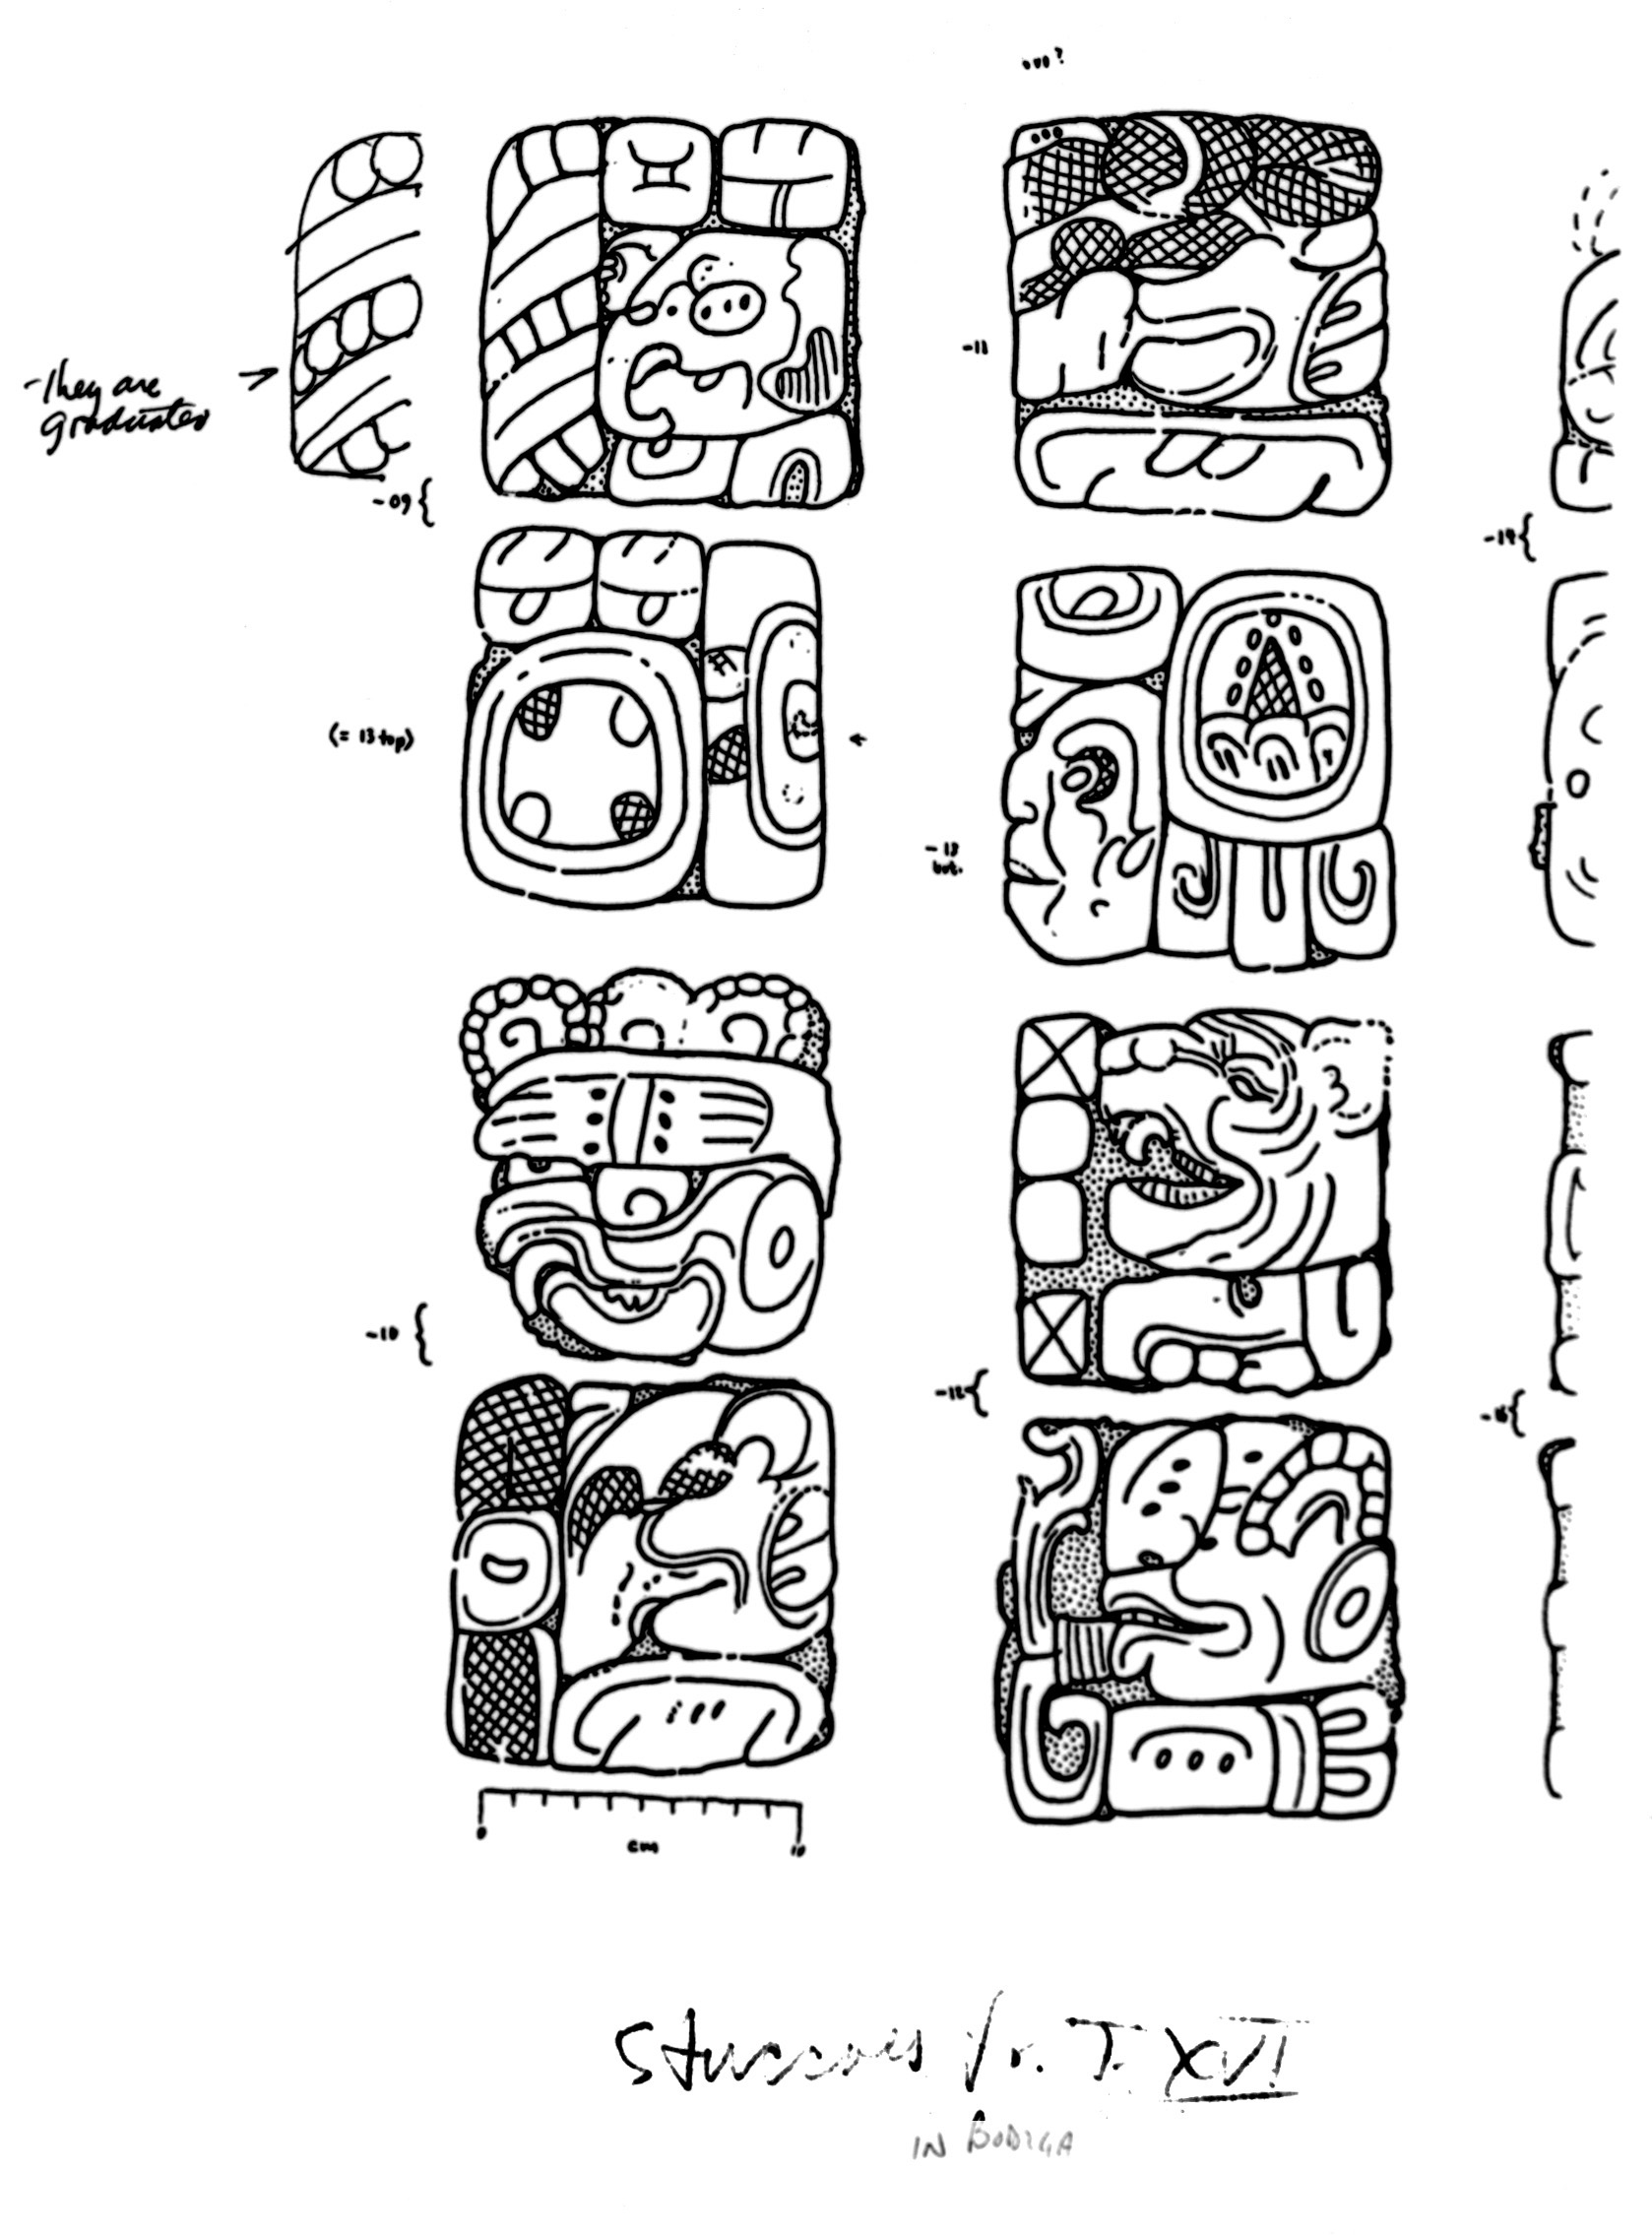 ...?
-They are
graduated
-09{
-11
-14{
(= 13 top)
-13
bot.
-10 {
-12{
0
10
cm
Stuccoes fr. T. XVI
IN BODEGA